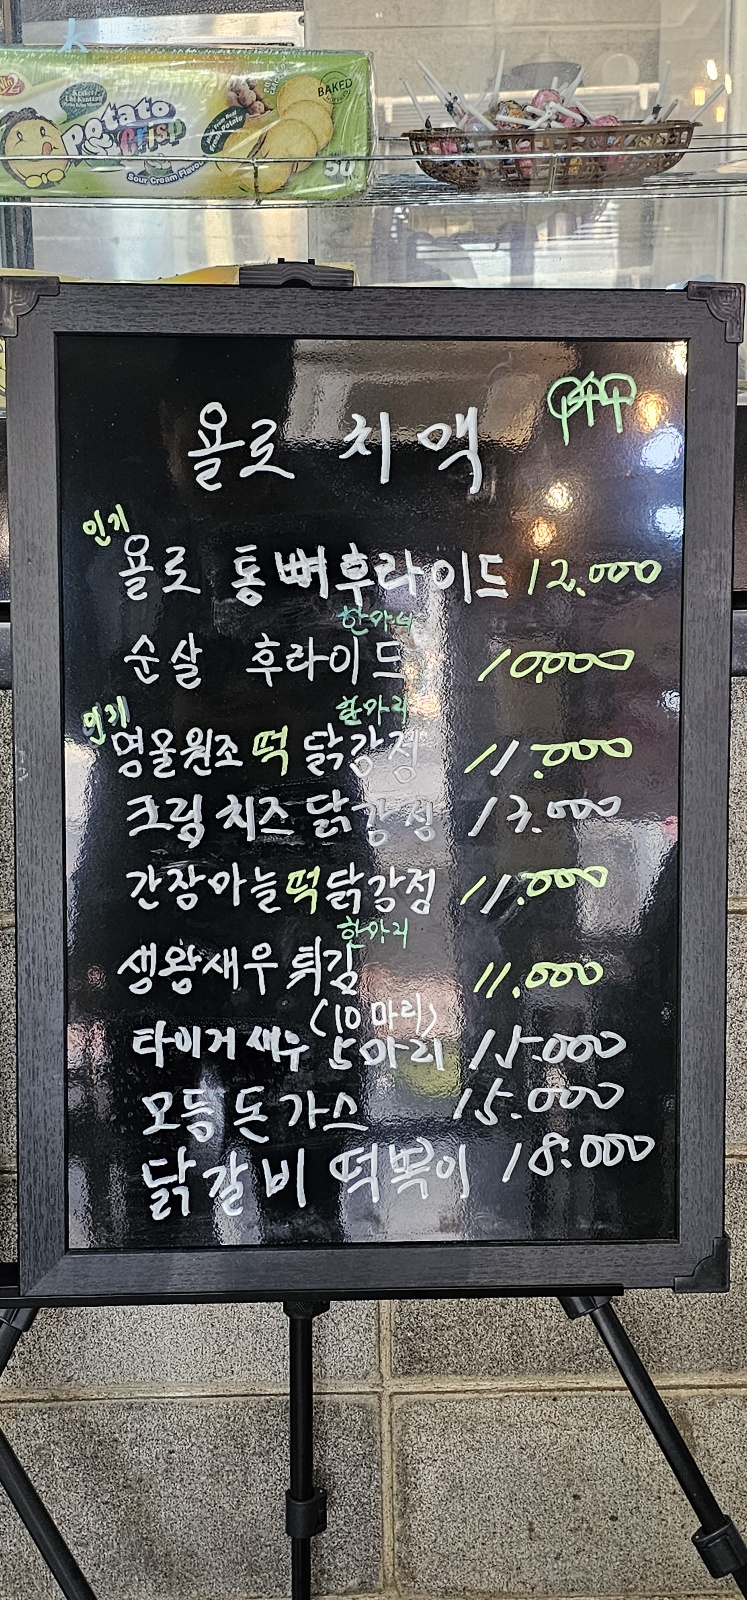 Potato
Crisp
Sour Cream Flavour
BAKED
50
욜로 치맥
인기
욜로 통뼈후라이드 12.000
한마리
순살 후라이드 10.000
한마리
인기
명물원조떡닭강정 11.000
크림치즈닭강정 13.000
간장마늘떡닭강정 11.000
한마리
생왕새우튀김 11.000
(10마리)
타이거새우 5마리 15.000
모듬돈가스 15.000
닭갈비 떡볶이 18.000